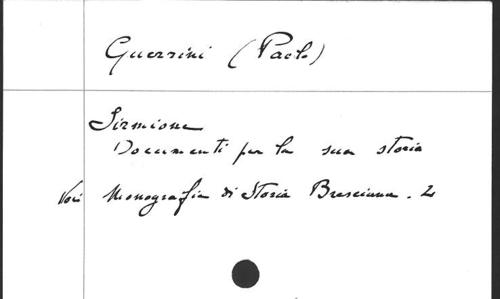 Guerrini (Paolo)
Sirmione
Documenti per la sua storia
Voir Monografia di Storia Bresciana. 2